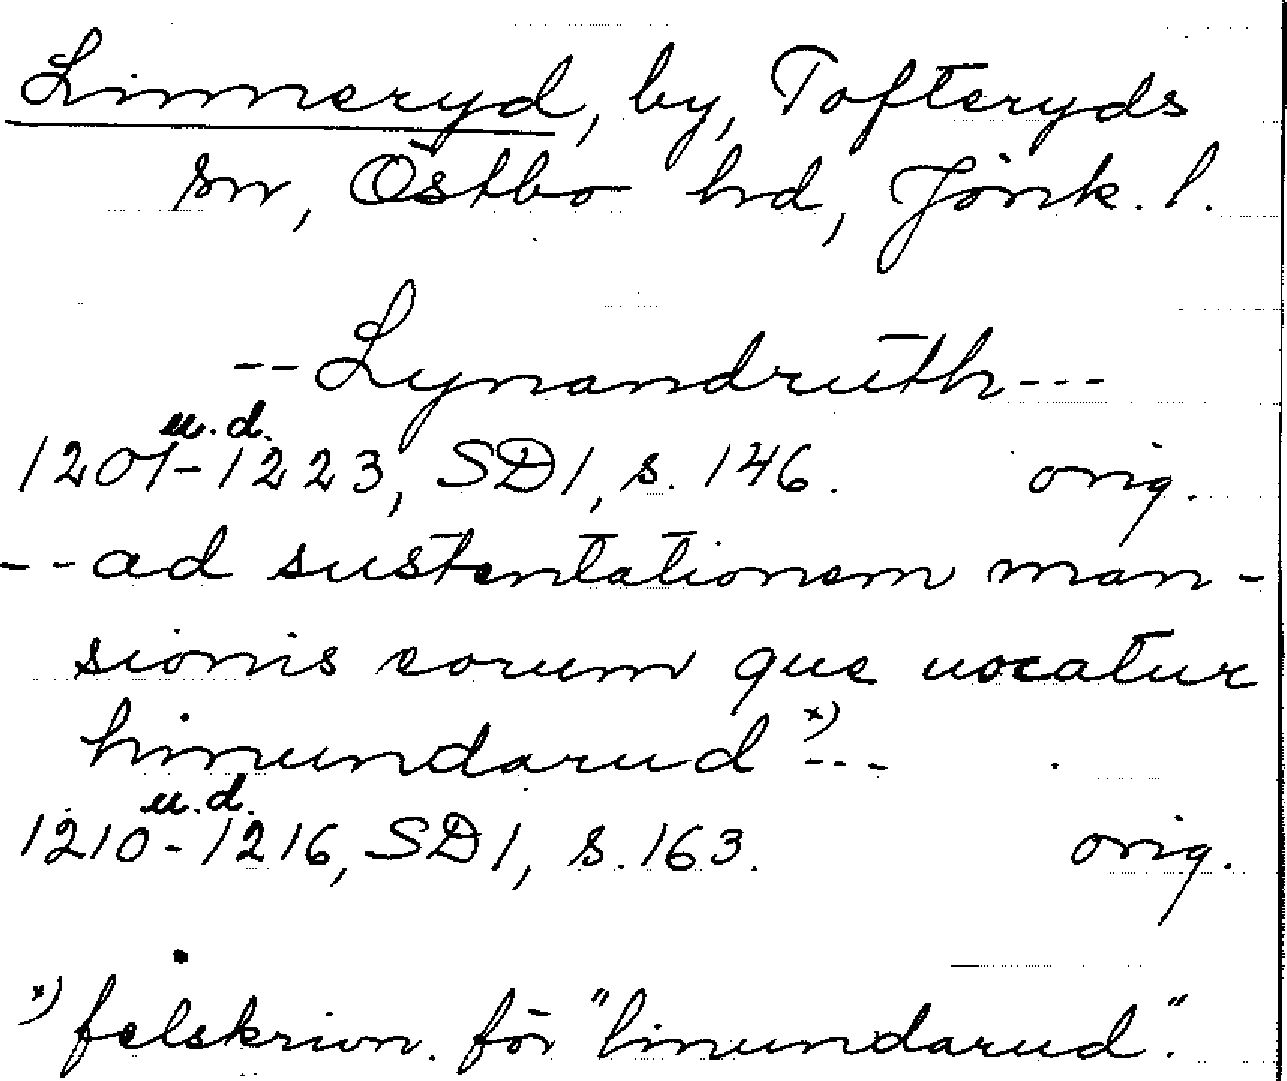 Linneryd, by, Tofteryds
sn, Östbo hd, Jönk. l.
--Lynandruth---
u.d.
1201-1223, SD1, s. 146. orig.
--ad sustentationem man-
sionis eorum que uocatur
hinundarud x)---
u.d.
1210-1216, SD1, s. 163. orig.
x) felskrivn. för "linundarud".